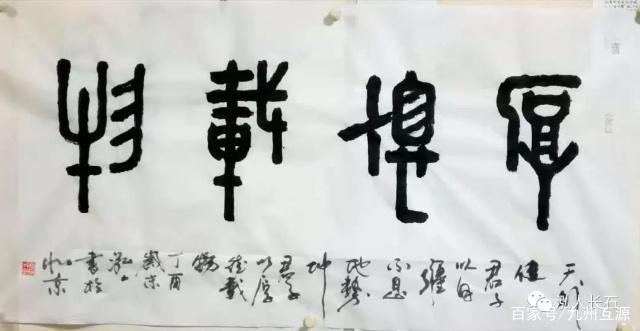 厚德載物
天行
健
君子
以自
強
不息
地勢
坤
君子
以厚
德載
物
丁酉
歲末
書於
北京
泓人长石
百家号/九州互源